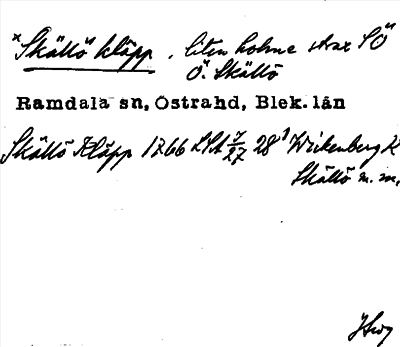 *Skällö kläpp, liten holme strax SO
O. Skällö
Ramdala sn, Östrahd, Blek. län
Skällö Kläpp 1766 LSA 7/27 28¹ Wickenberg K
Skällö m. m.